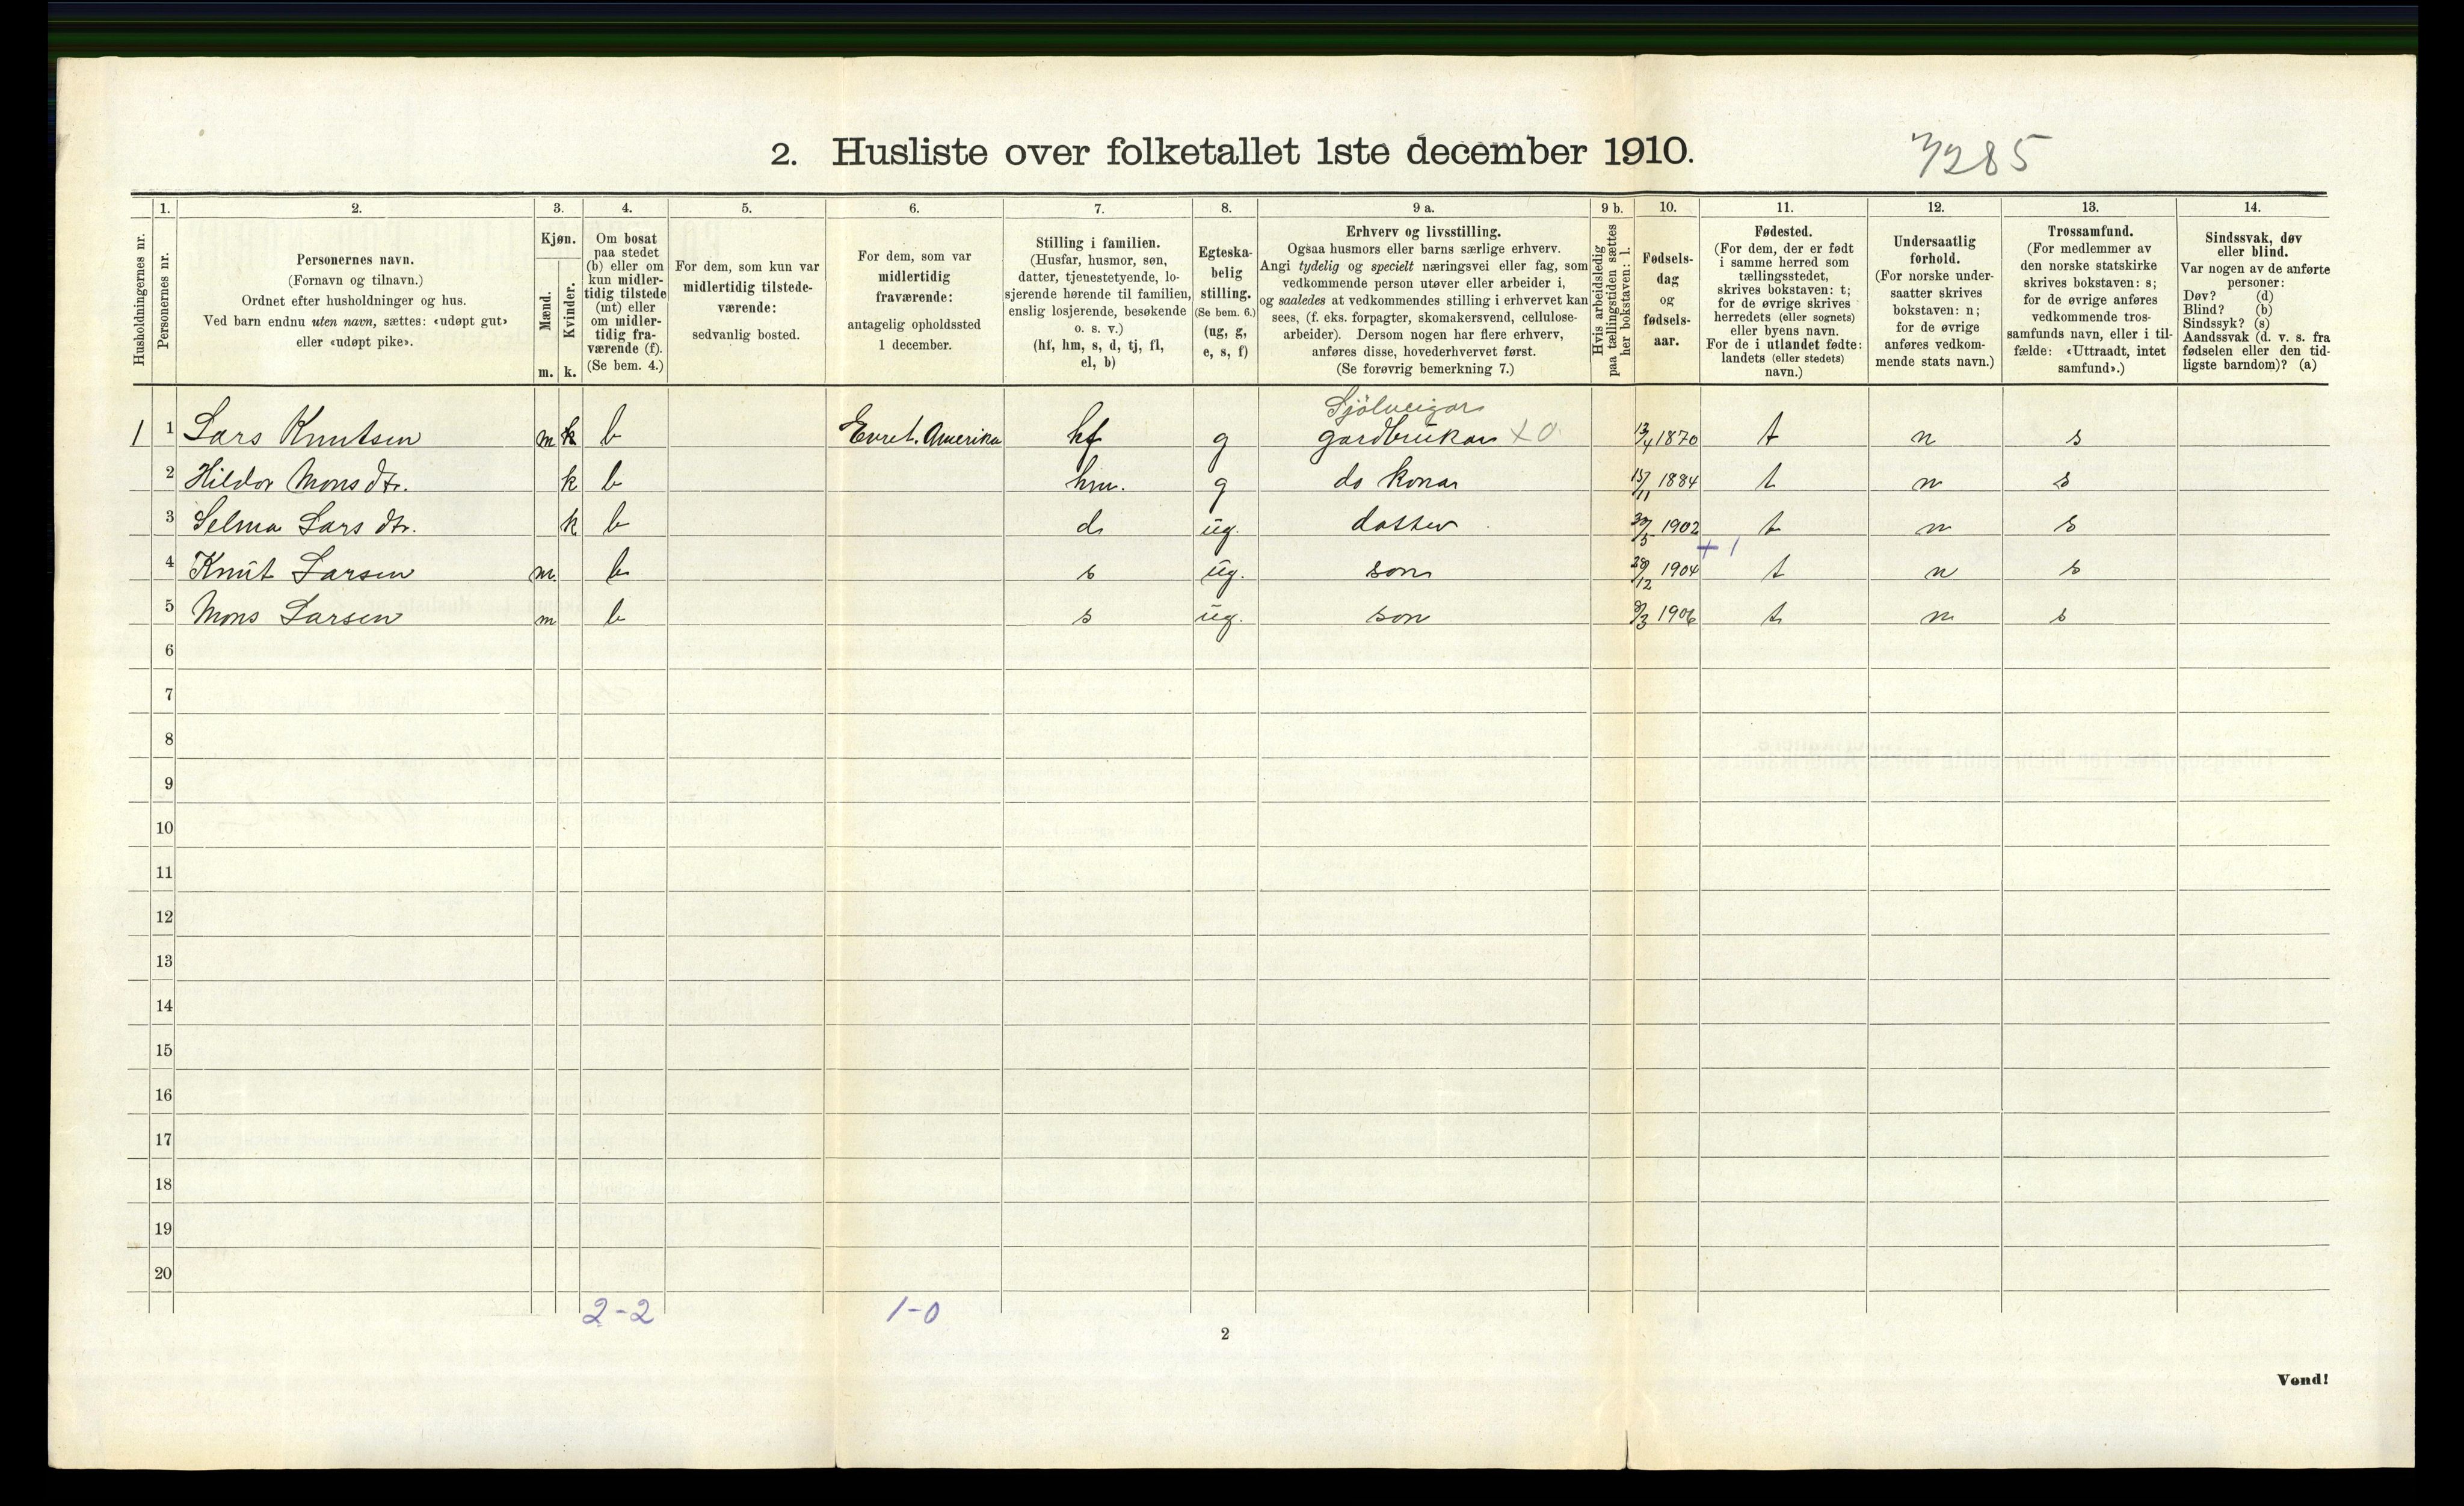 2. Husliste over folketallet 1ste december 1910.
7285
1. 2. 3. 4. 5. 6. 7. 8. 9 a. 9 b. 10. 11. 12. 13. 14.
Husholdningernes nr.
Personernes nr.
Personernes navn.
(Fornavn og tilnavn.)
Ordnet efter husholdninger og hus.
Ved barn endnu uten navn, sættes: «udøpt gut»
eller «udøpt pike».
Kjøn.
Mænd.
Kvinder.
m. k.
Om bosat
paa stedet
(b) eller om
kun midler-
tidig tilstede
(mt) eller
om midler-
tidig fra-
værende (f).
(Se bem. 4.)
For dem, som kun var
midlertidig tilstede-
værende:
sedvanlig bosted.
For dem, som var
midlertidig
fraværende:
antagelig opholdssted
1 december.
Stilling i familien.
(Husfar, husmor, søn,
datter, tjenestetyende, lo-
sjerende hørende til familien,
enslig losjerende, besøkende
o. s. v.)
(hf, hm, s, d, tj, fl,
el, b)
Egteska-
belig
stilling.
(Se bem. 6.)
(ug, g,
e, s, f)
Erhverv og livsstilling.
Ogsaa husmors eller barns særlige erhverv.
Angi tydelig og specielt næringsvei eller fag, som
vedkommende person utøver eller arbeider i,
og saaledes at vedkommendes stilling i erhvervet kan
sees, (f. eks. forpagter, skomakersvend, cellulose-
arbeider). Dersom nogen har flere erhverv,
anføres disse, hovederhvervet først.
(Se forøvrig bemerkning 7.)
Hvis arbeidsledig
paa tællingstiden sættes
her bokstaven: l.
Fødsels-
dag
og
fødsels-
aar.
Fødested.
(For dem, der er født
i samme herred som
tællingsstedet,
skrives bokstaven: t;
for de øvrige skrives
herredets (eller sognets)
eller byens navn.
For de i utlandet fødte:
landets (eller stedets)
navn.)
Undersaatlig
forhold.
(For norske under-
saatter skrives
bokstaven: n;
for de øvrige
anføres vedkom-
mende stats navn.)
Trossamfund.
(For medlemmer av
den norske statskirke
skrives bokstaven: s;
for de øvrige anføres
vedkommende tros-
samfunds navn, eller i til-
fælde: «Uttraadt, intet
samfund».)
Sindssvak, døv
eller blind.
Var nogen av de anførte
personer:
Døv? (d)
Blind? (b)
Sindssyk? (s)
Aandssvak (d. v. s. fra
fødselen eller den tid-
ligste barndom)? (a)
Sjölveigar
1 1 Lars Knutsen m k b Amerika hf g gardbrukar x 0 13/4 1870 t n s
2 Hildor Mons dtr. k b hm. g do kona 15/11 1884 t n s
3 Selma Lars dtr. k b d ug. datter 30/5 1902 t n s
+ 1
4 Knut Larsen m b s ug. son 28/12 1904 t n s
5 Mons Larsen m b s ug. son 9/3 1906 t n s
6
7
8
9
10
11
12
13
14
15
16
17
18
19
20
2-2 1-0
2
Vend!